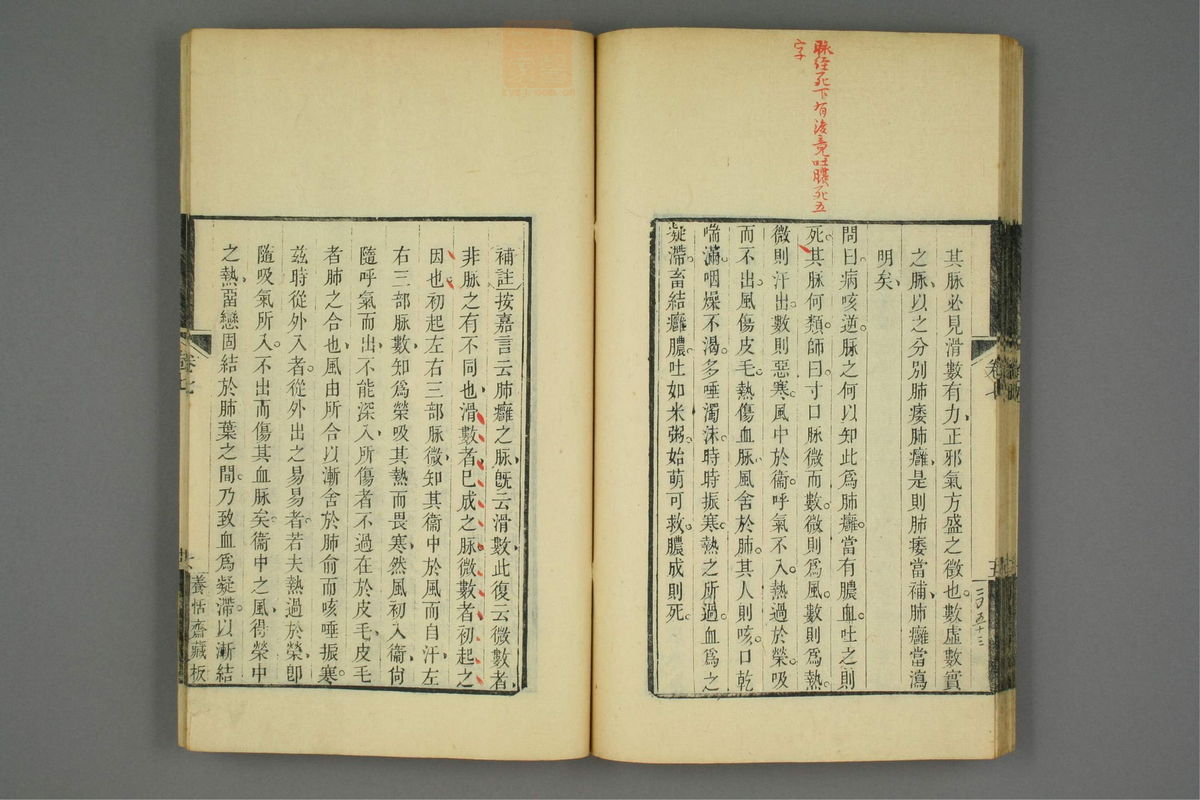 脉经死下有後竟吐膿死五
字
其脉必見滑數有力正邪氣方盛之徵也數虛數實
之脉以之分別肺痿肺癰是則肺痿當補肺癰當瀉
明矣
問曰病咳逆脉之何以知此爲肺癰當有膿血吐之則
死其脉何類師曰寸口脉微而數微則爲風數則爲熱
微則汗出數則惡寒風中於衞呼氣不入熱過於榮吸
而不出風傷皮毛熱傷血脉風舍於肺其人則咳口乾
喘滿咽燥不渴多唾濁沫時時振寒熱之所過血爲之
凝滯畜結癰膿吐如米粥始萌可救膿成則死
卷七
五
補註按嘉言云肺癰之脉旣云滑數此復云微數者
非脉之有不同也滑數者已成之脉微數者初起之
因也初起左右三部脉微知其衞中於風而自汗左
右三部脉數知爲榮吸其熱而畏寒然風初入衞尙
隨呼氣而出不能深入所傷者不過在於皮毛皮毛
者肺之合也風由所合以漸舍於肺俞而咳唾振寒
茲時從外入者從外出之易易者若夫熱過於榮卽
隨吸氣所入不出而傷其血脉矣衞中之風得榮中
之熱畱戀固結於肺葉之間乃致血爲凝滯以漸結
卷七
六
養恬齋藏板